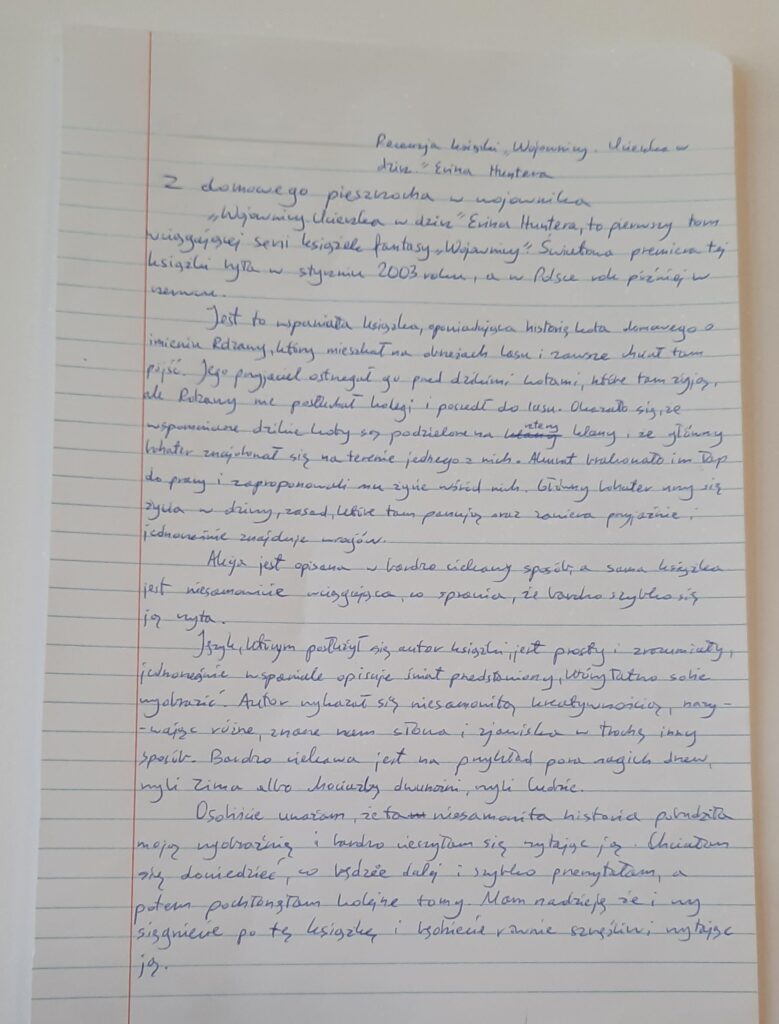 Recenzja książki „Wojownicy. Ucieczka w
dzicz." Erina Huntera
Z domowego pieszczocha w wojownika
„Wojownicy. Ucieczka w dzicz" Erina Huntera, to pierwszy tom
wciągającej serii książek fantasy „Wojownicy". Światowa premiera tej
książki była w styczniu 2003 roku, a w Polsce rok później w
czerwcu.
Jest to wspaniała książka, opowiadająca historię kota domowego o
imieniu Rdzawy, który mieszkał na obrzeżach lasu i zawsze chciał tam
pójść. Jego przyjaciel ostrzegał go przed dzikimi kotami, które tam żyją,
ale Rdzawy nie posłuchał kolegi i poszedł do lasu. Okazało się, że
wspomniane dzikie koty są podzielone na cztery klany, że główny
bohater znajdował się na terenie jednego z nich. Akurat brakowało im łap
do pracy i zaproponowali mu życie wśród nich. Główny bohater uczy się
życia w dziczy, zasad, które tam panują oraz zawiera przyjaźnie i
jednocześnie znajduje wrogów.
Akcja jest opisana w bardzo ciekawy sposób, a sama książka
jest niesamowicie wciągająca, co sprawia, że bardzo szybko się
ją czyta.
Język, którym posłużył się autor książki, jest prosty i zrozumiały,
jednocześnie wspaniale opisuje świat przedstawiony, który łatwo sobie
wyobrazić. Autor wykazał się niesamowitą kreatywnością, nazy-
-wając różne, znane nam słowa i zjawiska w trochę inny
sposób. Bardzo ciekawa jest na przykład pora nagich drzew,
czyli Zima albo chociażby dwunożni, czyli ludzie.
Osobiście uważam, że ta niesamowita historia pobudziła
moją wyobraźnię i bardzo cieszyłam się czytając ją. Chciałam
się dowiedzieć, co będzie dalej i szybko przeczytałam, a
potem pochłonęłam kolejne tomy. Mam nadzieję że i wy
sięgniecie po tę książkę i będziecie równie szczęśliwi czytając
ją.